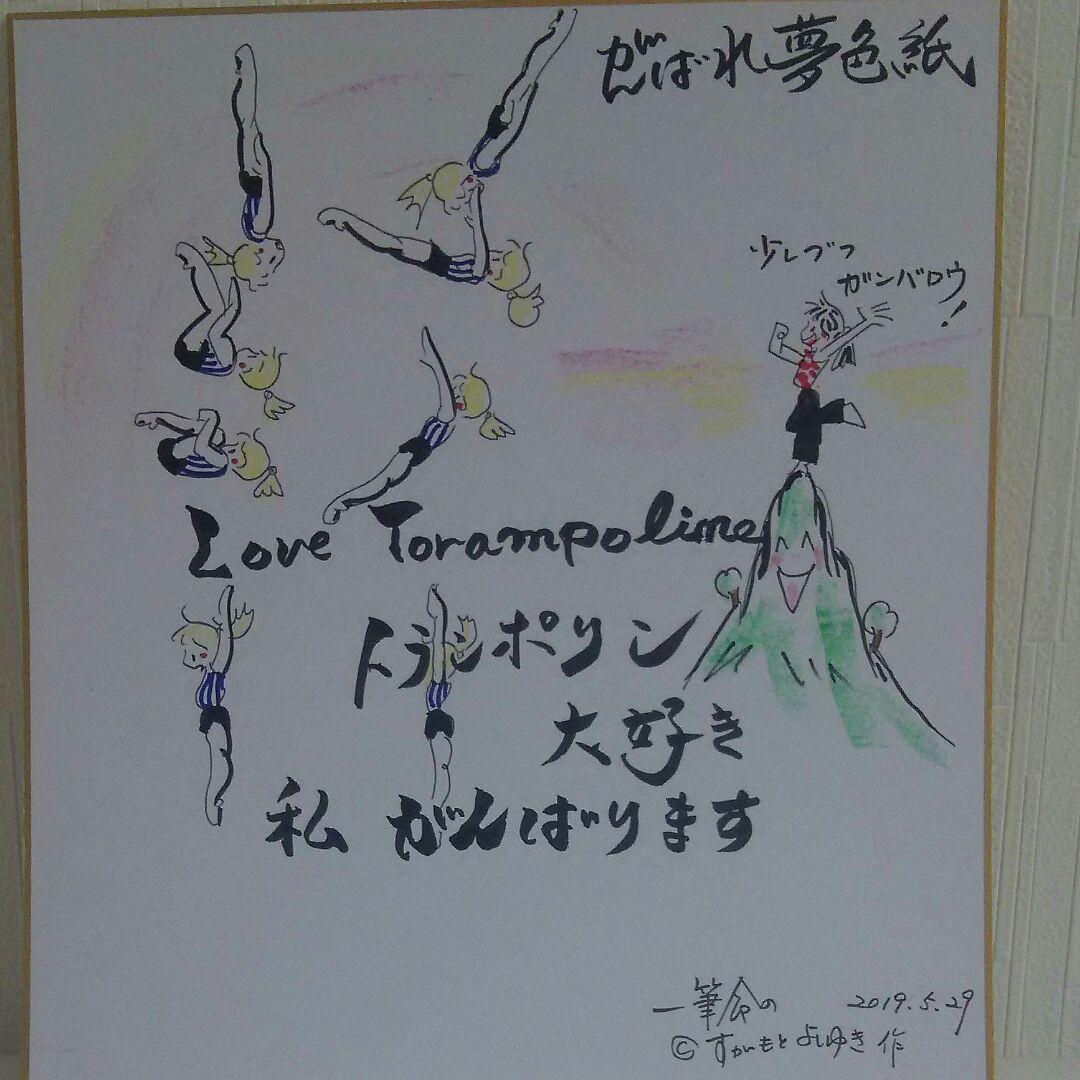 がんばれ夢色紙
少しづつ
ガンバロウ!
Love Torampoline
トランポリン
大好き
私 がんばります
一筆命の 2019.5.29
© すがもとよしゆき 作